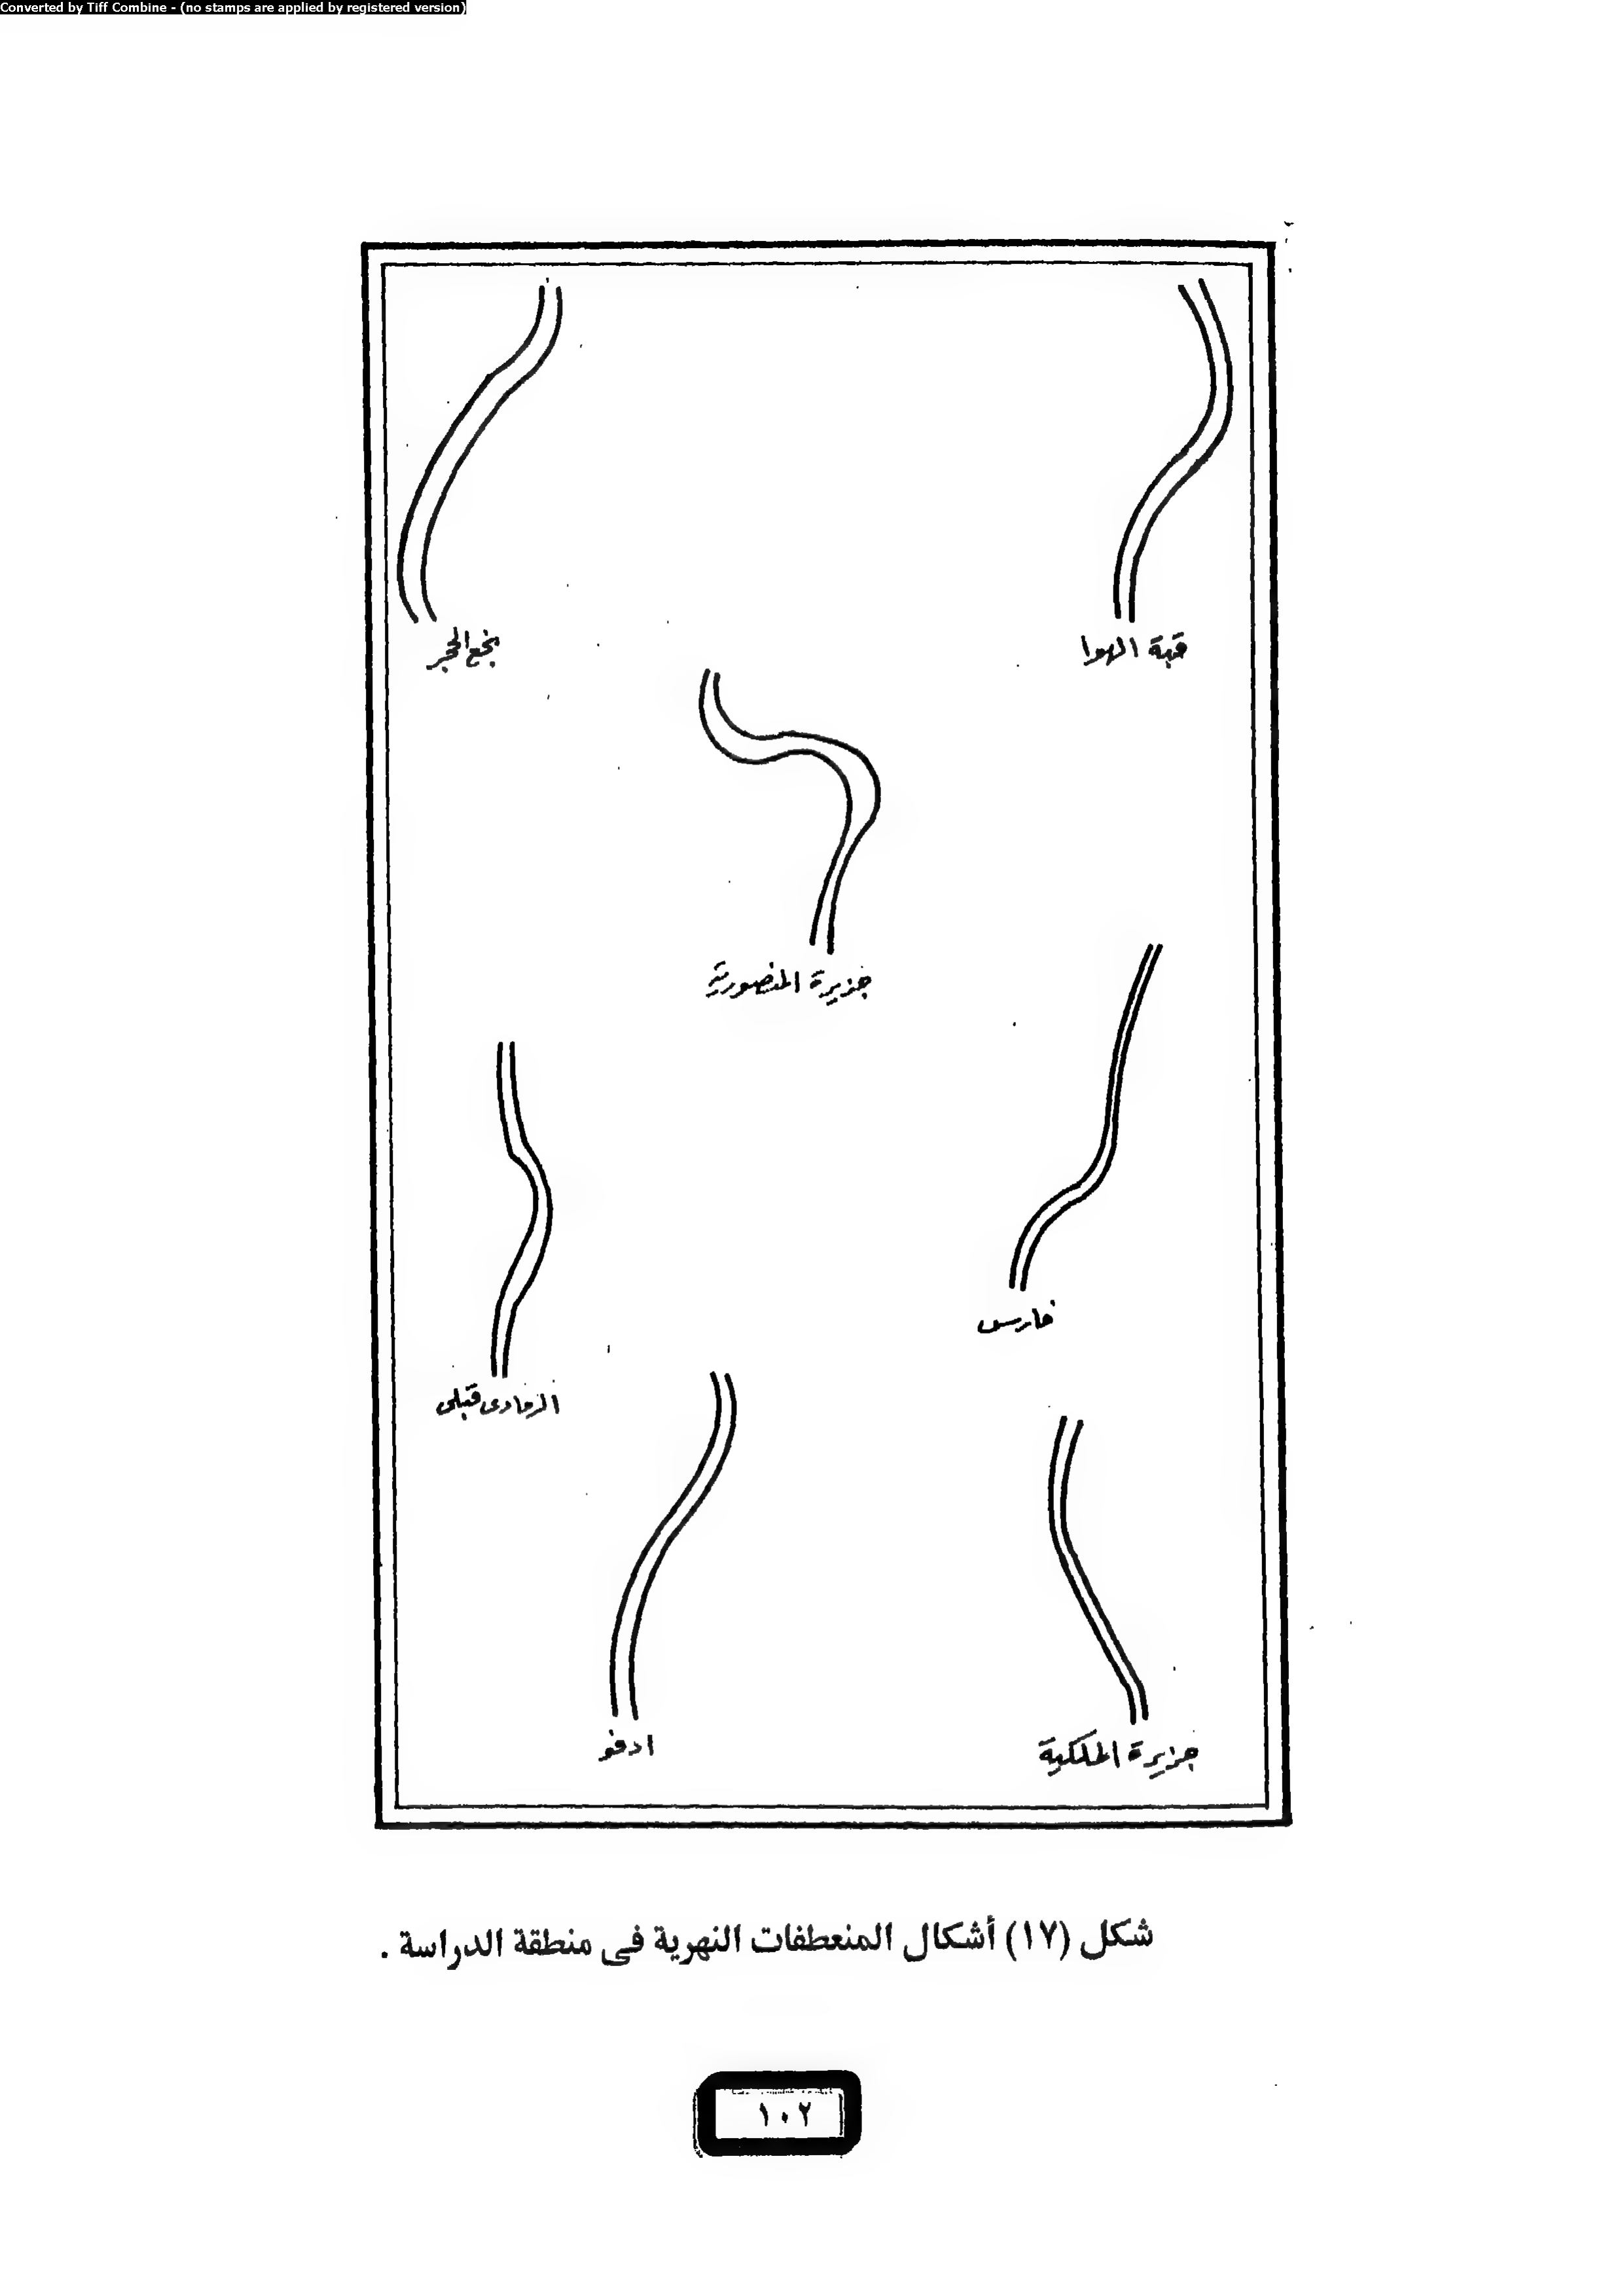 Converted by Tiff Combine - (no stamps are applied by registered version)
قبة الهوا
نجع الحجر
جزيرة المنصورية
فارس
الرمادى قبلى
جزيرة الملكية
ادفو
شكل (١٧) أشكال المنعطفات النهرية فى منطقة الدراسة .
١٠٢